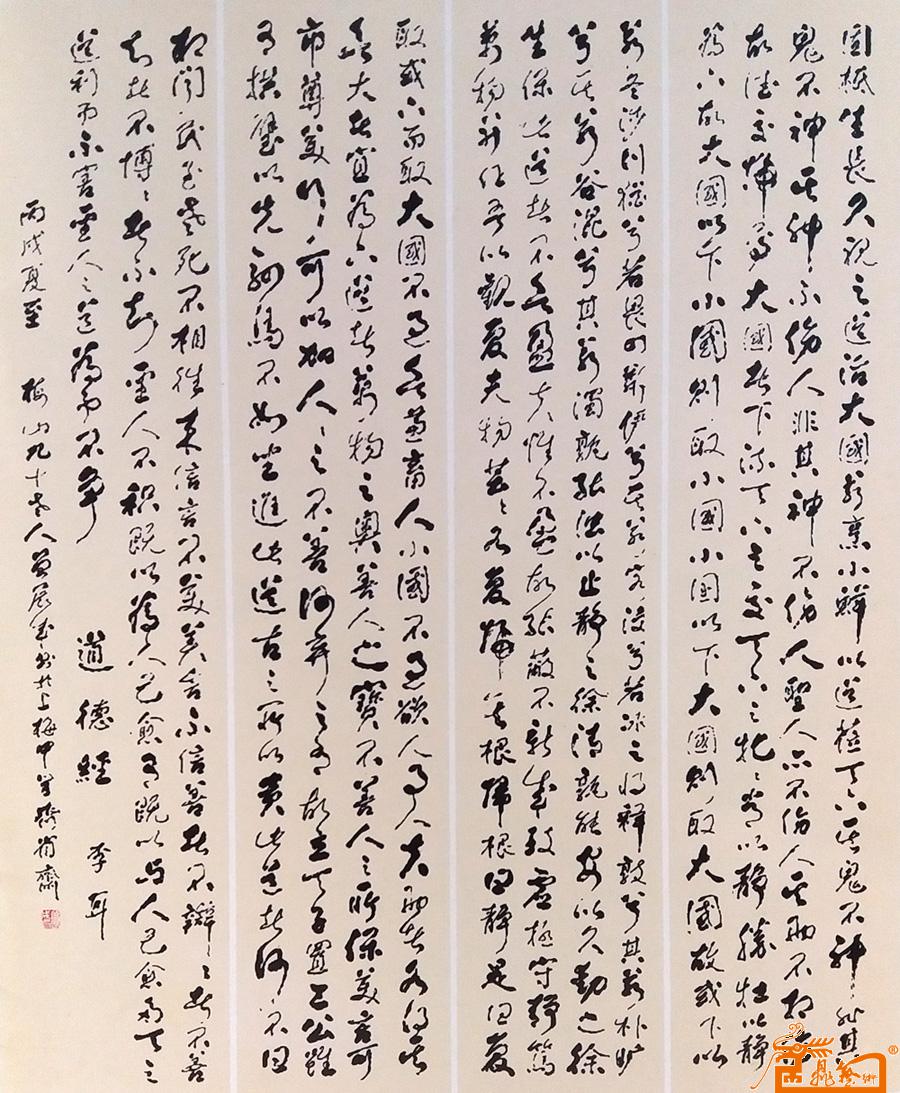 固柢生長久視之道治大國若烹小鮮以道蒞天下其鬼不神々非其
鬼不神其神々不傷人非其神不傷人聖人亦不傷人夫兩不相傷
故德交歸焉大國者下流天下之交天下之牝々常以靜勝牡以靜
為下故大國以下小國則取小國小國以下大國則取大國故或下以
若冬涉川猶兮若畏四鄰儼兮其若客渙兮若冰之將釋敦兮其若朴曠
兮其若谷混兮其若濁孰能濁以止靜之徐清孰能安以久動之徐
生保此道者不欲盈夫惟不盈故能蔽不新成致虛極守靜篤
萬物並作吾以觀復夫物芸々各復歸其根歸根曰靜是曰復
取或下而取大國不過欲兼畜人小國不過欲入事人夫兩者各得其
欲大者宜為下道者萬物之奧善人之寶不善人之所保美言可
市尊美行々可以加人々之不善何棄之有故立天子置三公雖
有拱璧以先駟馬不如坐進此道古之所以貴此道者何不曰
相聞民至老死不相往來信言不美美言不信善者不辯々者不善
知者不博々者不知聖人不積既以為人己愈有既以與人己愈多天之
道利而不害聖人之道為而不爭
道德經 李耳
丙戌夏至 梅山九十老人 書於上梅 齋